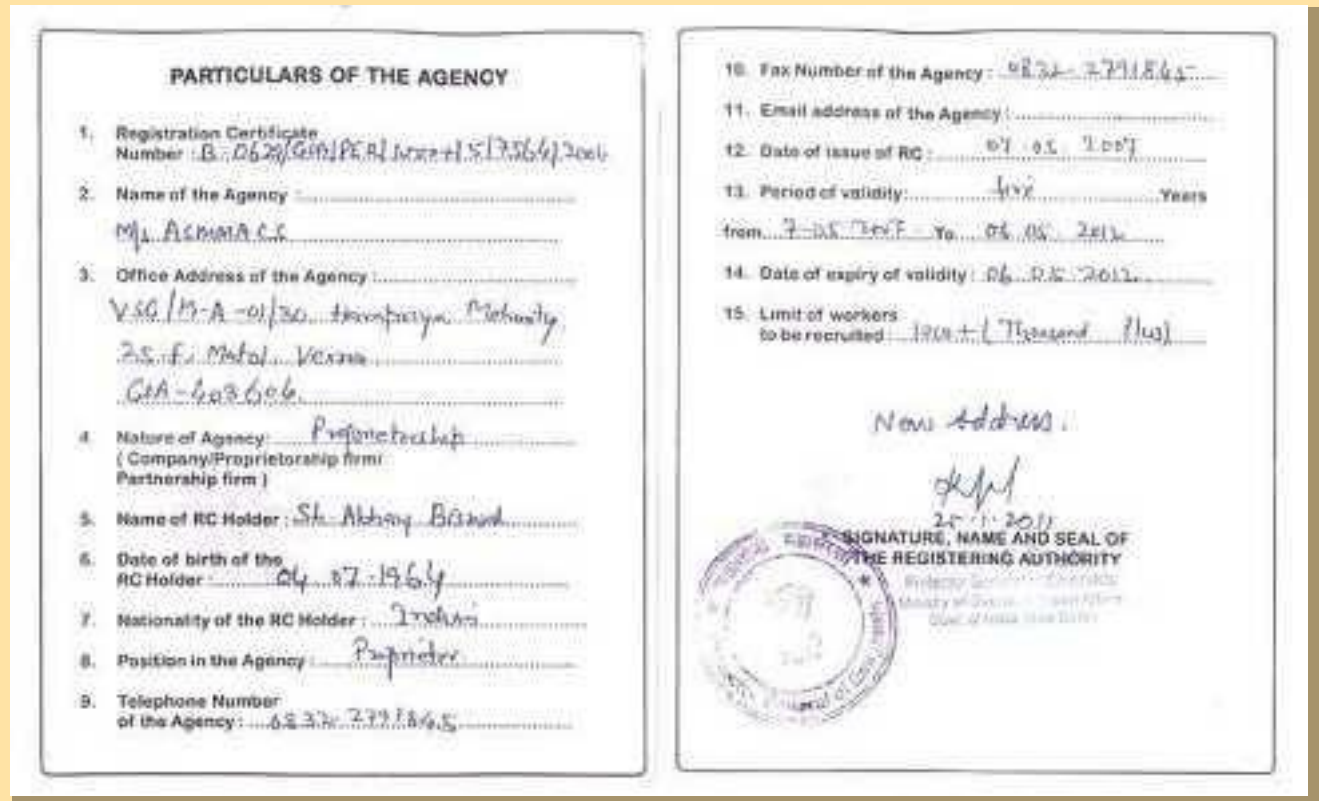 PARTICULARS OF THE AGENCY
1. Registration Certificate
Number : B-0629/GOA/PER/
2. Name of the Agency :
M/s
3. Office Address of the Agency :
VSG/M-A-01/30
Verna
GOA-403606
4. Nature of Agency: Proprietorship
( Company/Proprietorship firm/
Partnership firm )
5. Name of RC Holder : Sh. Abhay
6. Date of birth of the
RC Holder : 04.07.1964
7. Nationality of the RC Holder : Indian
8. Position in the Agency : Proprietor
9. Telephone Number
of the Agency : 0832-2791845
10. Fax Number of the Agency : 0832-2791845
11. Email address of the Agency :
12. Date of issue of RC : 07.05.2007
13. Period of validity: five Years
from 7-05 2007 To 06.05.2012
14. Date of expiry of validity : 06.05.2012
15. Limit of workers
to be recruited : 1000+ (Thousand Plus)
New Address.
25.1.2011
SIGNATURE, NAME AND SEAL OF
THE REGISTERING AUTHORITY